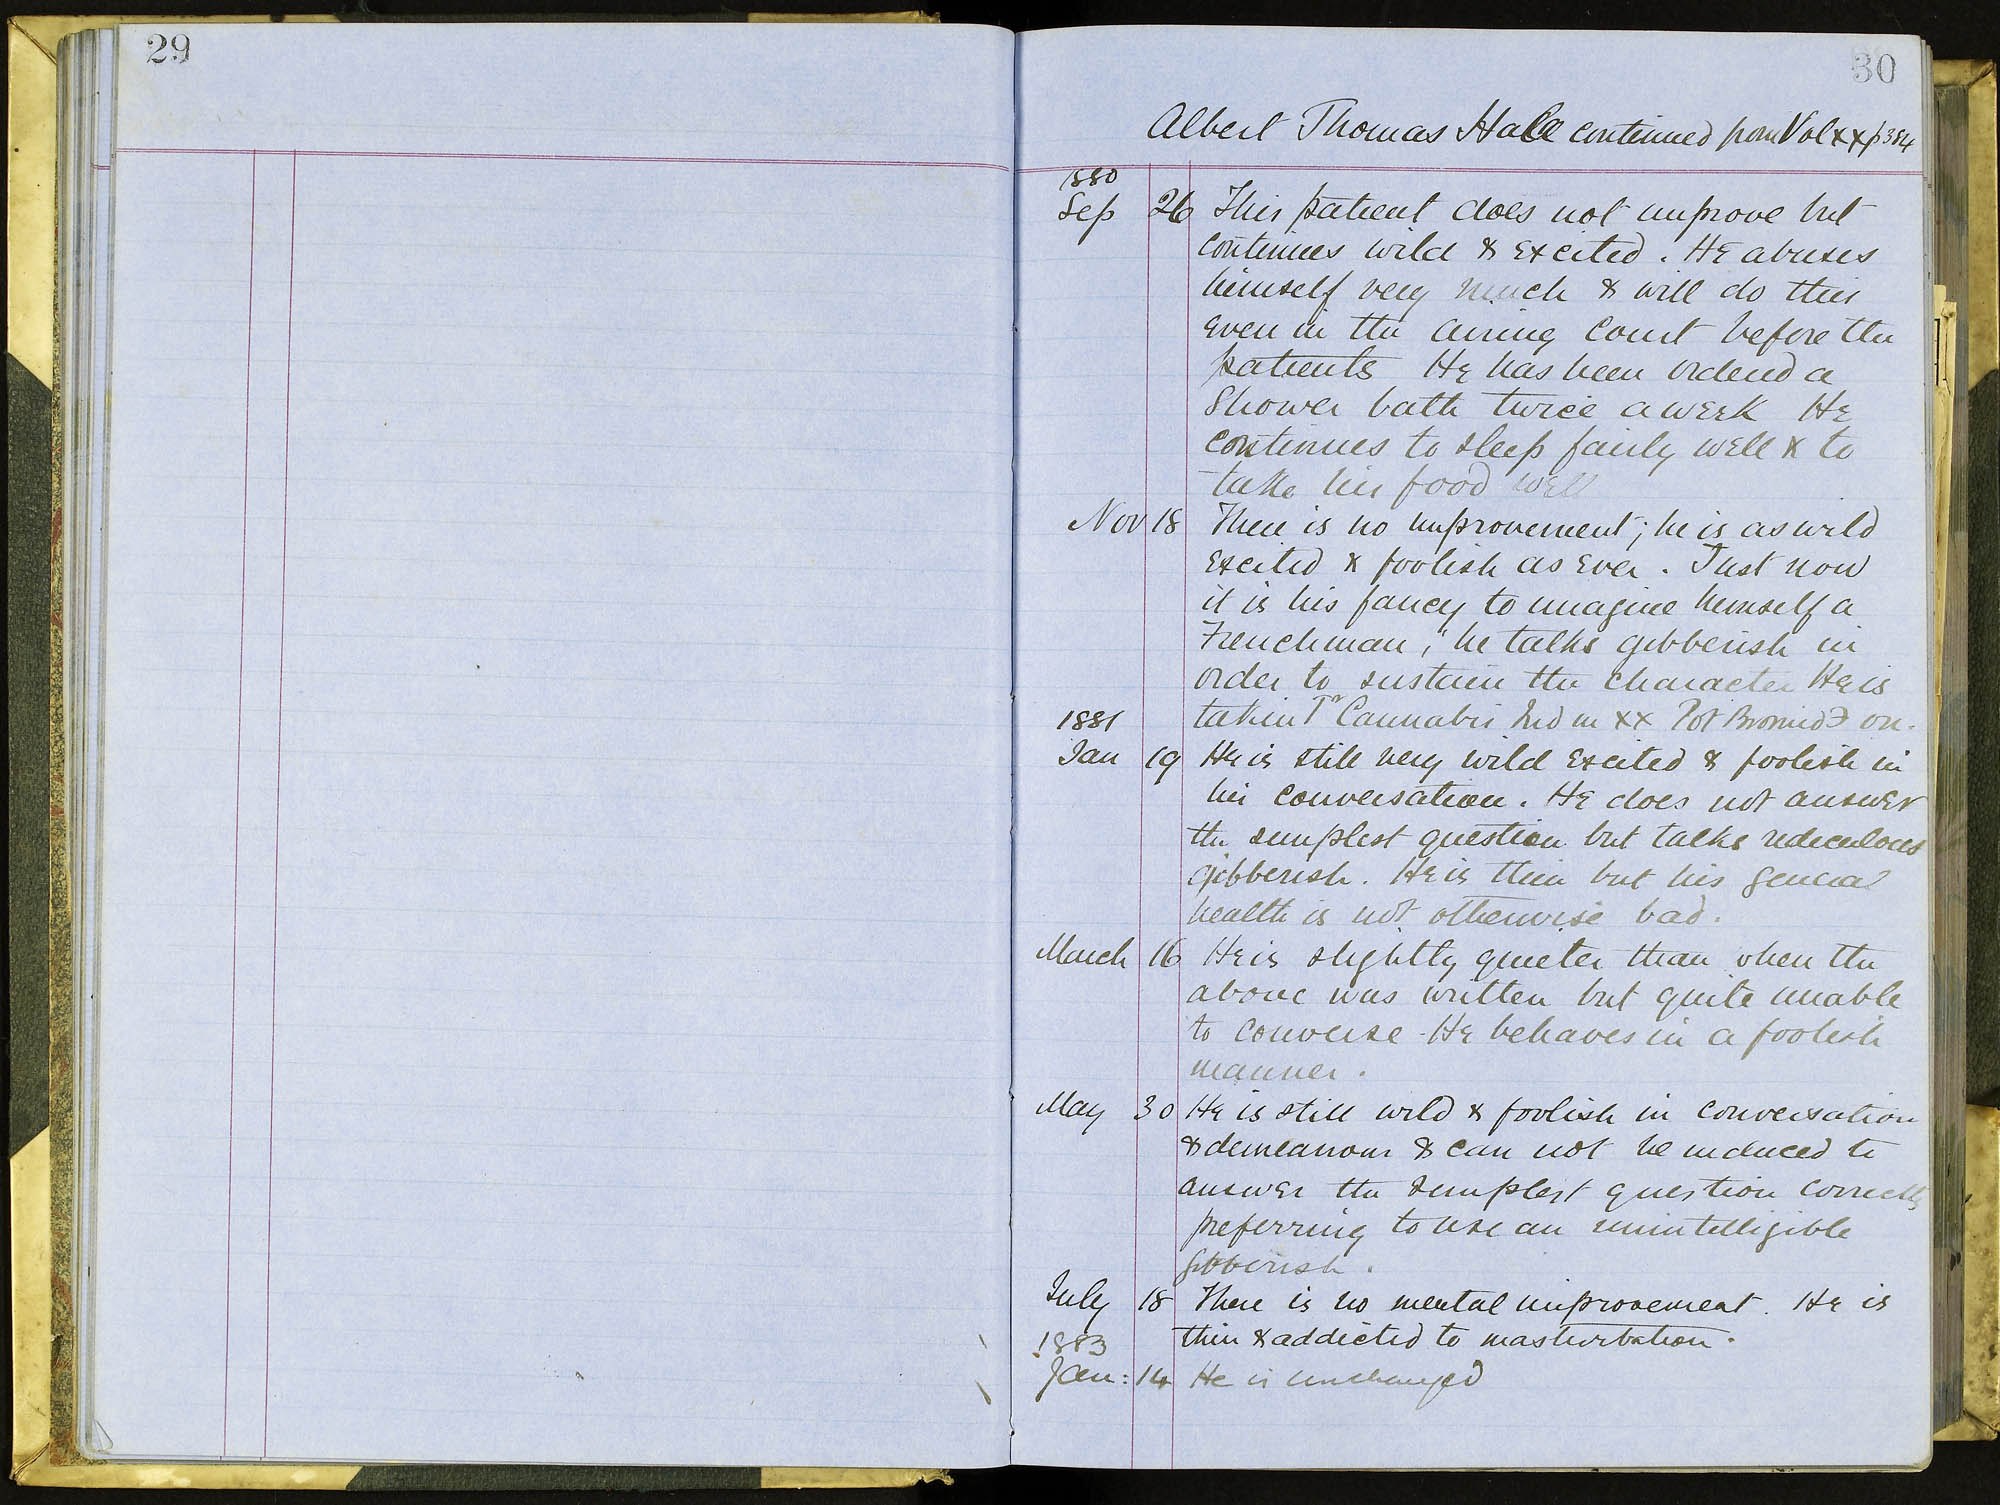 29
30
Albert Thomas Hall continued from Vol xx p 384
1880
Sep 26 This patient does not improve but
continues wild & excited. He abuses
himself very much & will do this
even in the airing court before the
patients He has been ordered a
Shower bath twice a week He
continues to sleep fairly well & to
take his food well
Nov 18 There is no improvement; he is as wild
excited & foolish as ever. Just now
it is his fancy to imagine himself a
Frenchman; he talks gibberish in
order to sustain the character He is
1881
takin Tr Cannabis Ind m xx Pot Bromid
Jan 19 He is still very wild excited & foolish in
his conversation. He does not answer
the simplest question but talks rediculous
gibberish. He is thin but his general
health is not otherwise bad.
March 16 He is slightly quieter than when the
above was written but quite unable
to converse - He behaves in a foolish
manner.
May 30 He is still wild & foolish in conversation
& demeanour & can not be induced to
answer the simplest question correctly
preferring to use an unintelligible
gibberish.
July 18 There is no mental improvement. He is
thin & addicted to masturbation.
1883
Jan: 14 He is unchanged